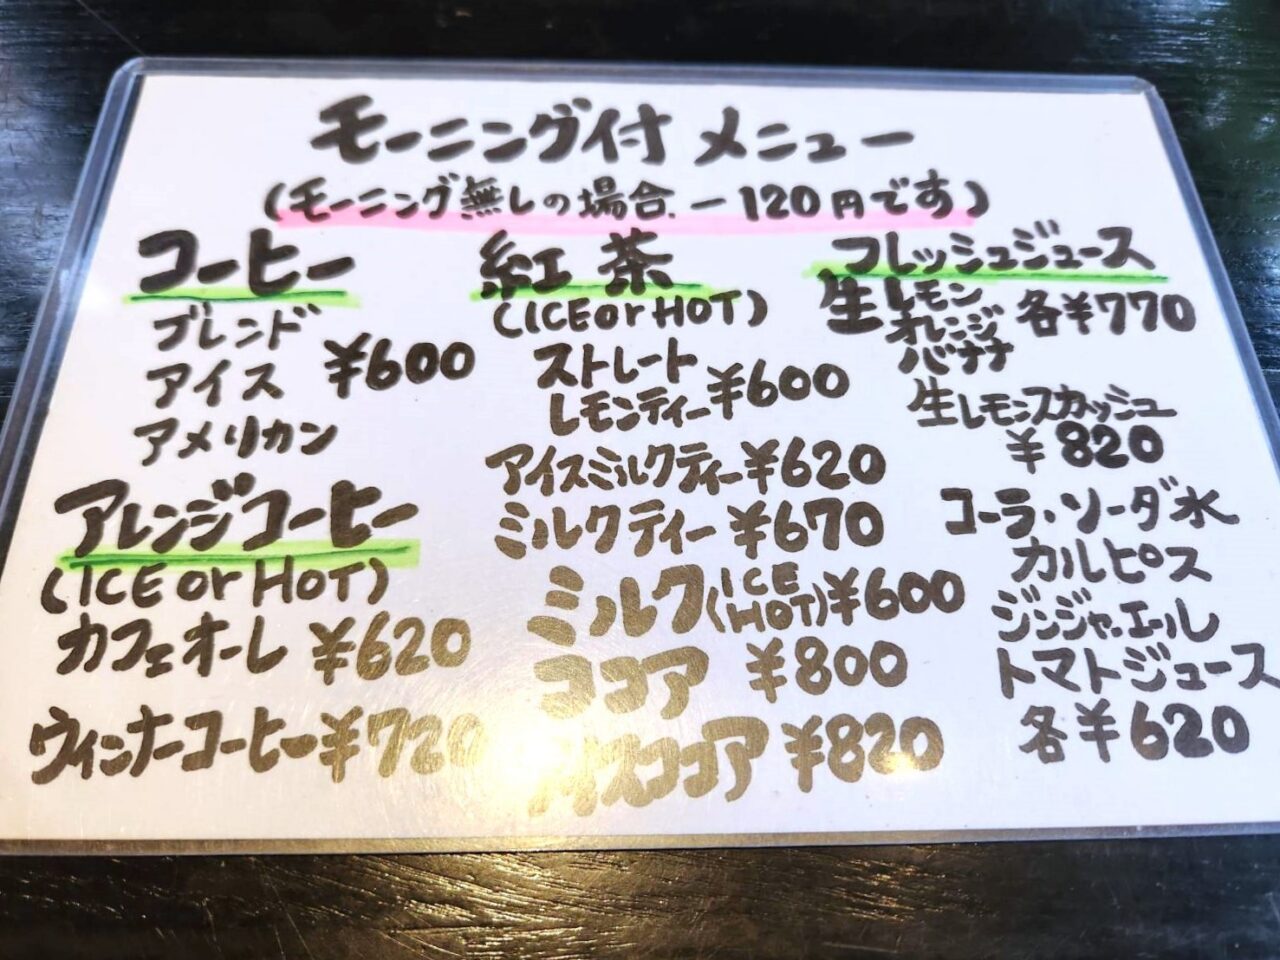 モーニング付 メニュー
(モーニング無しの場合 -120円です)
コーヒー
ブレンド
アイス ¥600
アメリカン
アレンジコーヒー
(ICE or HOT)
カフェオーレ ¥620
ウィンナーコーヒー ¥720
紅茶
(ICE or HOT)
ストレート
レモンティー ¥600
アイスミルクティー ¥620
ミルクティー ¥670
ミルク (ICE HOT) ¥600
ココア ¥800
アイスココア ¥820
フレッシュジュース
生レモン
オレンジ 各¥770
バナナ
生レモンスカッシュ
¥820
コーラ・ソーダ水
カルピス
ジンジャエール
トマトジュース
各¥620